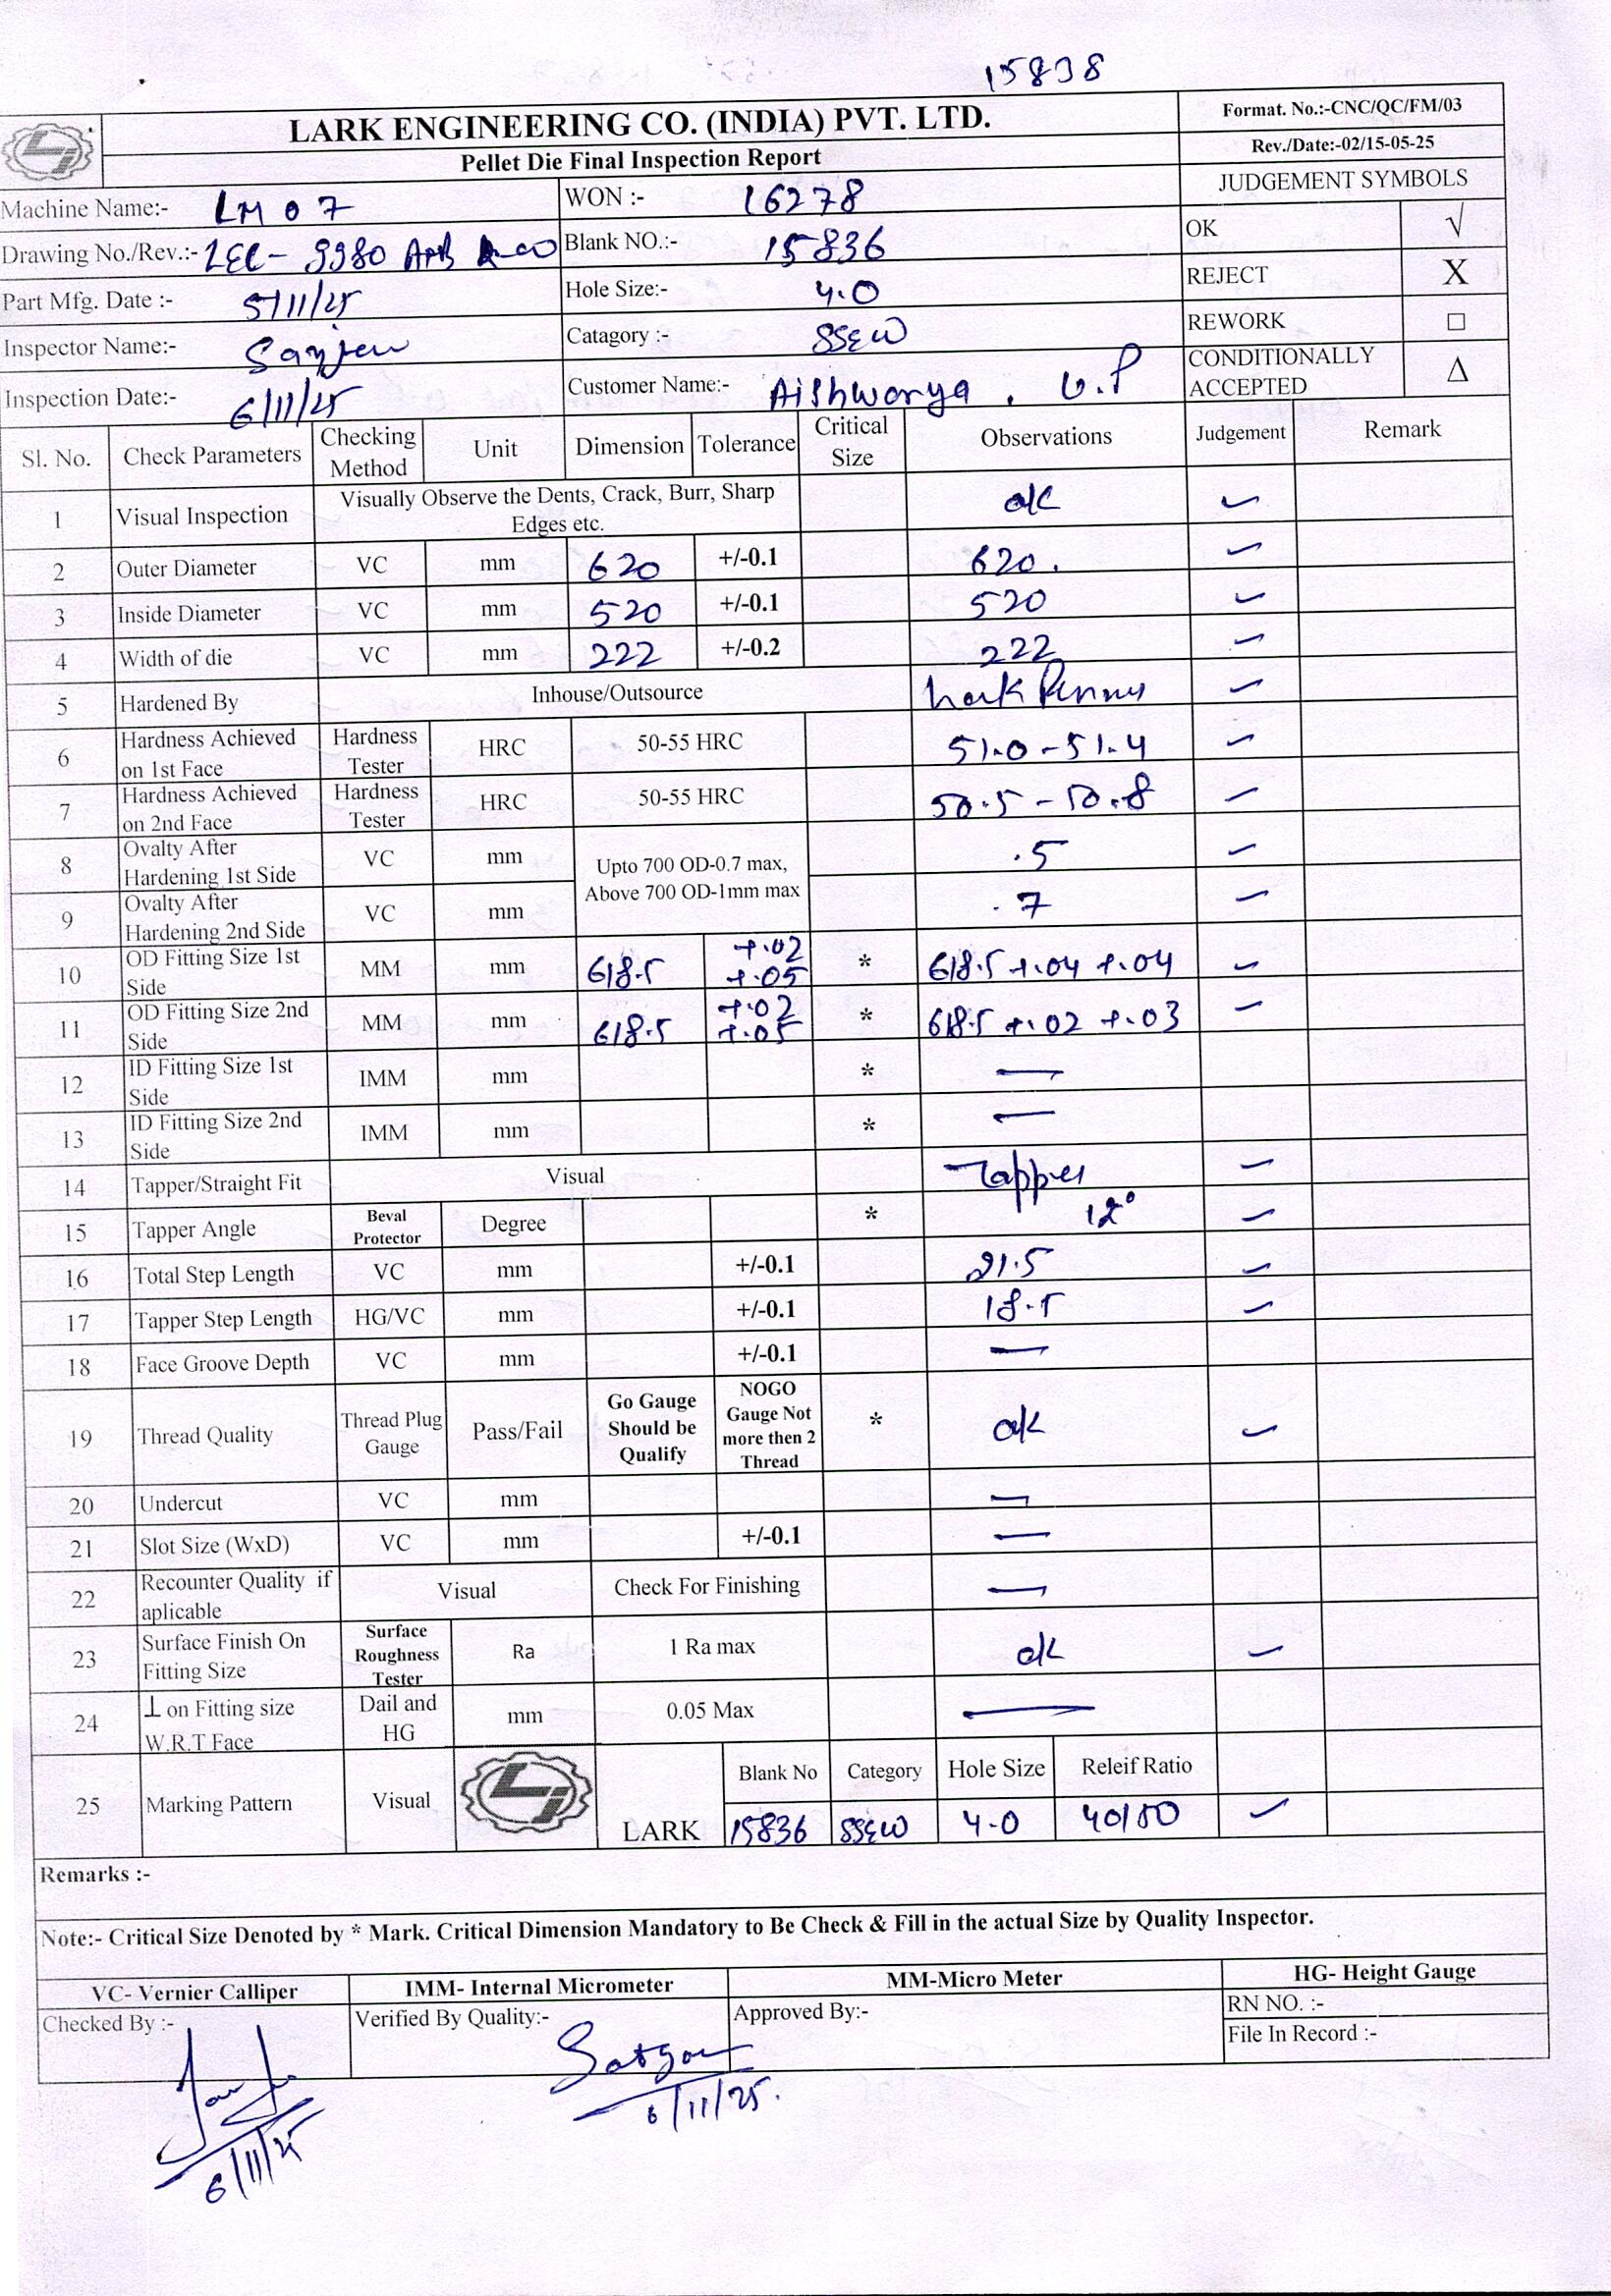 15838
LARK ENGINEERING CO. (INDIA) PVT. LTD.
Pellet Die Final Inspection Report
Format. No.:-CNC/QC/FM/03
Rev./Date:-02/15-05-25
Machine Name:- LM 07
WON :- 16278
JUDGEMENT SYMBOLS
Drawing No./Rev.:-
Blank NO.:- 15836
OK √
Part Mfg. Date :- 5/11/25
Hole Size:- 4.0
REJECT X
Inspector Name:-
Catagory :- SSEW
REWORK □
Inspection Date:- 6/11/25
Customer Name:- Aishwarya . U.P
CONDITIONALLY ACCEPTED Δ
Sl. No. Check Parameters Checking Method Unit Dimension Tolerance Critical Size Observations Judgement Remark
1 Visual Inspection Visually Observe the Dents, Crack, Burr, Sharp Edges etc. ok ✓
2 Outer Diameter VC mm 620 +/-0.1 620. ✓
3 Inside Diameter VC mm 520 +/-0.1 520 ✓
4 Width of die VC mm 222 +/-0.2 222 ✓
5 Hardened By Inhouse/Outsource ✓
6 Hardness Achieved on 1st Face Hardness Tester HRC 50-55 HRC 51.0-51.4 ✓
7 Hardness Achieved on 2nd Face Hardness Tester HRC 50-55 HRC 50.5-50.8 ✓
8 Ovalty After Hardening 1st Side VC mm Upto 700 OD-0.7 max, Above 700 OD-1mm max .5 ✓
9 Ovalty After Hardening 2nd Side VC mm .7 ✓
10 OD Fitting Size 1st Side MM mm 618.5 +.02 +.05 * 618.5 +.04 +.04 ✓
11 OD Fitting Size 2nd Side MM mm 618.5 +.02 +.05 * 618.5 +.02 +.03 ✓
12 ID Fitting Size 1st Side IMM mm * —
13 ID Fitting Size 2nd Side IMM mm * —
14 Tapper/Straight Fit Visual Tapper ✓
15 Tapper Angle Beval Protector Degree * 12° ✓
16 Total Step Length VC mm +/-0.1 21.5 ✓
17 Tapper Step Length HG/VC mm +/-0.1 18.5 ✓
18 Face Groove Depth VC mm +/-0.1 —
19 Thread Quality Thread Plug Gauge Pass/Fail Go Gauge Should be Qualify NOGO Gauge Not more then 2 Thread * ok ✓
20 Undercut VC mm —
21 Slot Size (WxD) VC mm +/-0.1 —
22 Recounter Quality if aplicable Visual Check For Finishing —
23 Surface Finish On Fitting Size Surface Roughness Tester Ra 1 Ra max ok ✓
24 ⊥ on Fitting size W.R.T Face Dail and HG mm 0.05 Max —
25 Marking Pattern Visual LARK Blank No Category Hole Size Releif Ratio
15836 SSEW 4.0 40/50 ✓
Remarks :-
Note:- Critical Size Denoted by * Mark. Critical Dimension Mandatory to Be Check & Fill in the actual Size by Quality Inspector.
VC- Vernier Calliper IMM- Internal Micrometer MM-Micro Meter HG- Height Gauge
Checked By :- Verified By Quality:- Approved By:- RN NO. :-
File In Record :-
6/11/25
6/11/25.